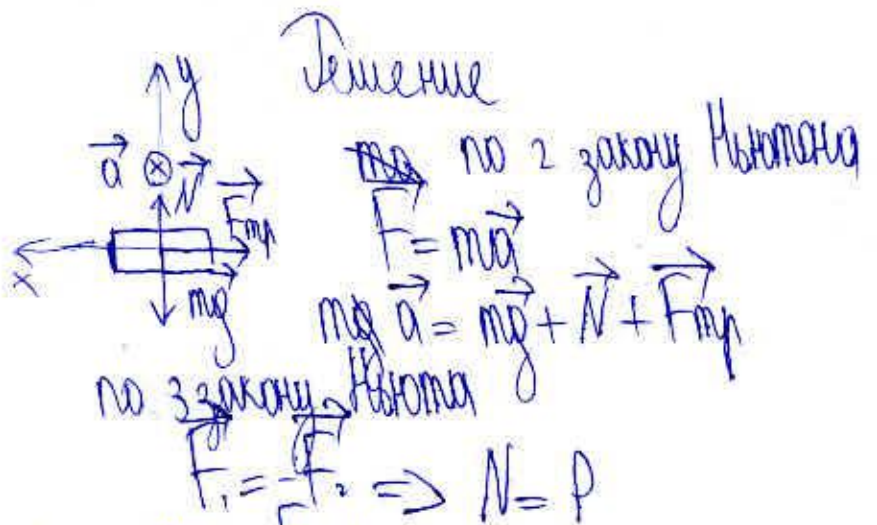 Решение
y
a⃗ ⊗ N⃗
F⃗тр
x
mg⃗
по 2 закону Ньютона
F⃗ = ma⃗
m a⃗ = mg⃗ + N⃗ + F⃗тр
по 3 закону Ньюта
F⃗₁ = -F⃗₂ => N = P